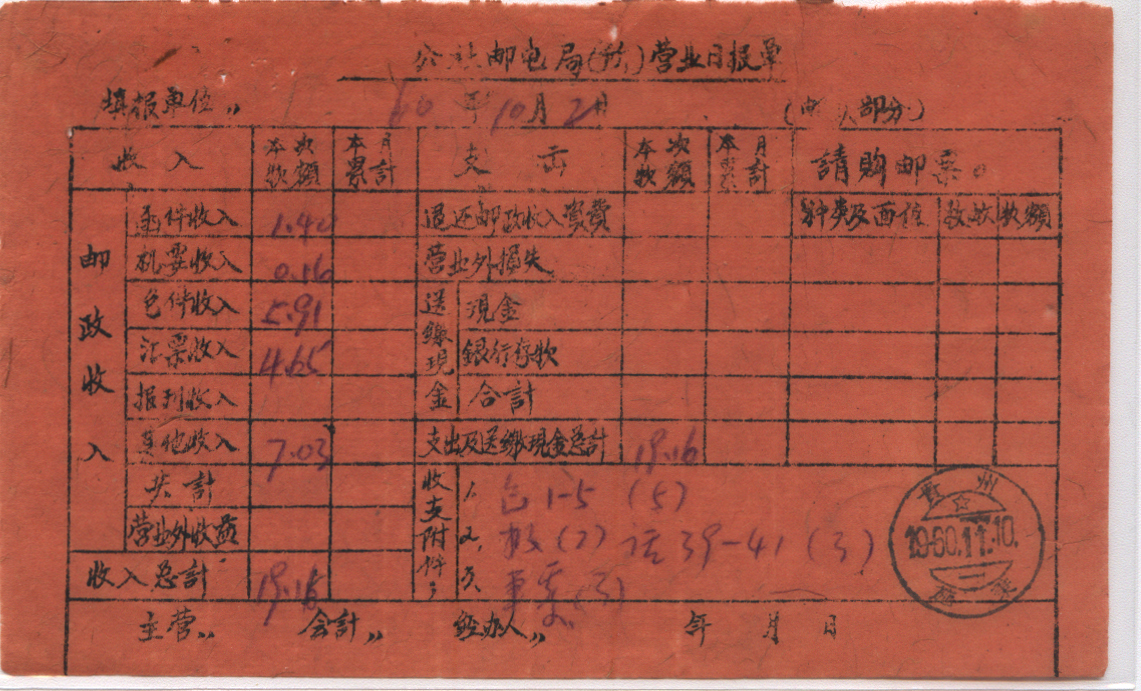 公社邮电局(所)营业日报单
填报单位,, 60年10月2日 (收入部分)
收入 本次款額 本月累計 支出 本次款額 本月累計 請购邮票。
邮政收入 函件收入 1.40 退还邮政收入資費 种类及面值 枚数 款額
机要收入 0.16 营业外損失
包件收入 5.91 送繳現金 現金
汇票收入 4.65 銀行存款
报刊收入 合計
其他收入 7.03 支出及送繳現金总計 19.16
共計 收支附件; 1. 包1-5 (5)
营业外收益 2. (2) 话39-41 (3)
收入总計 19.15 3. (3)
貴州
1960.11.10.
主营,, 会計,, 经办人,, 年 月 日